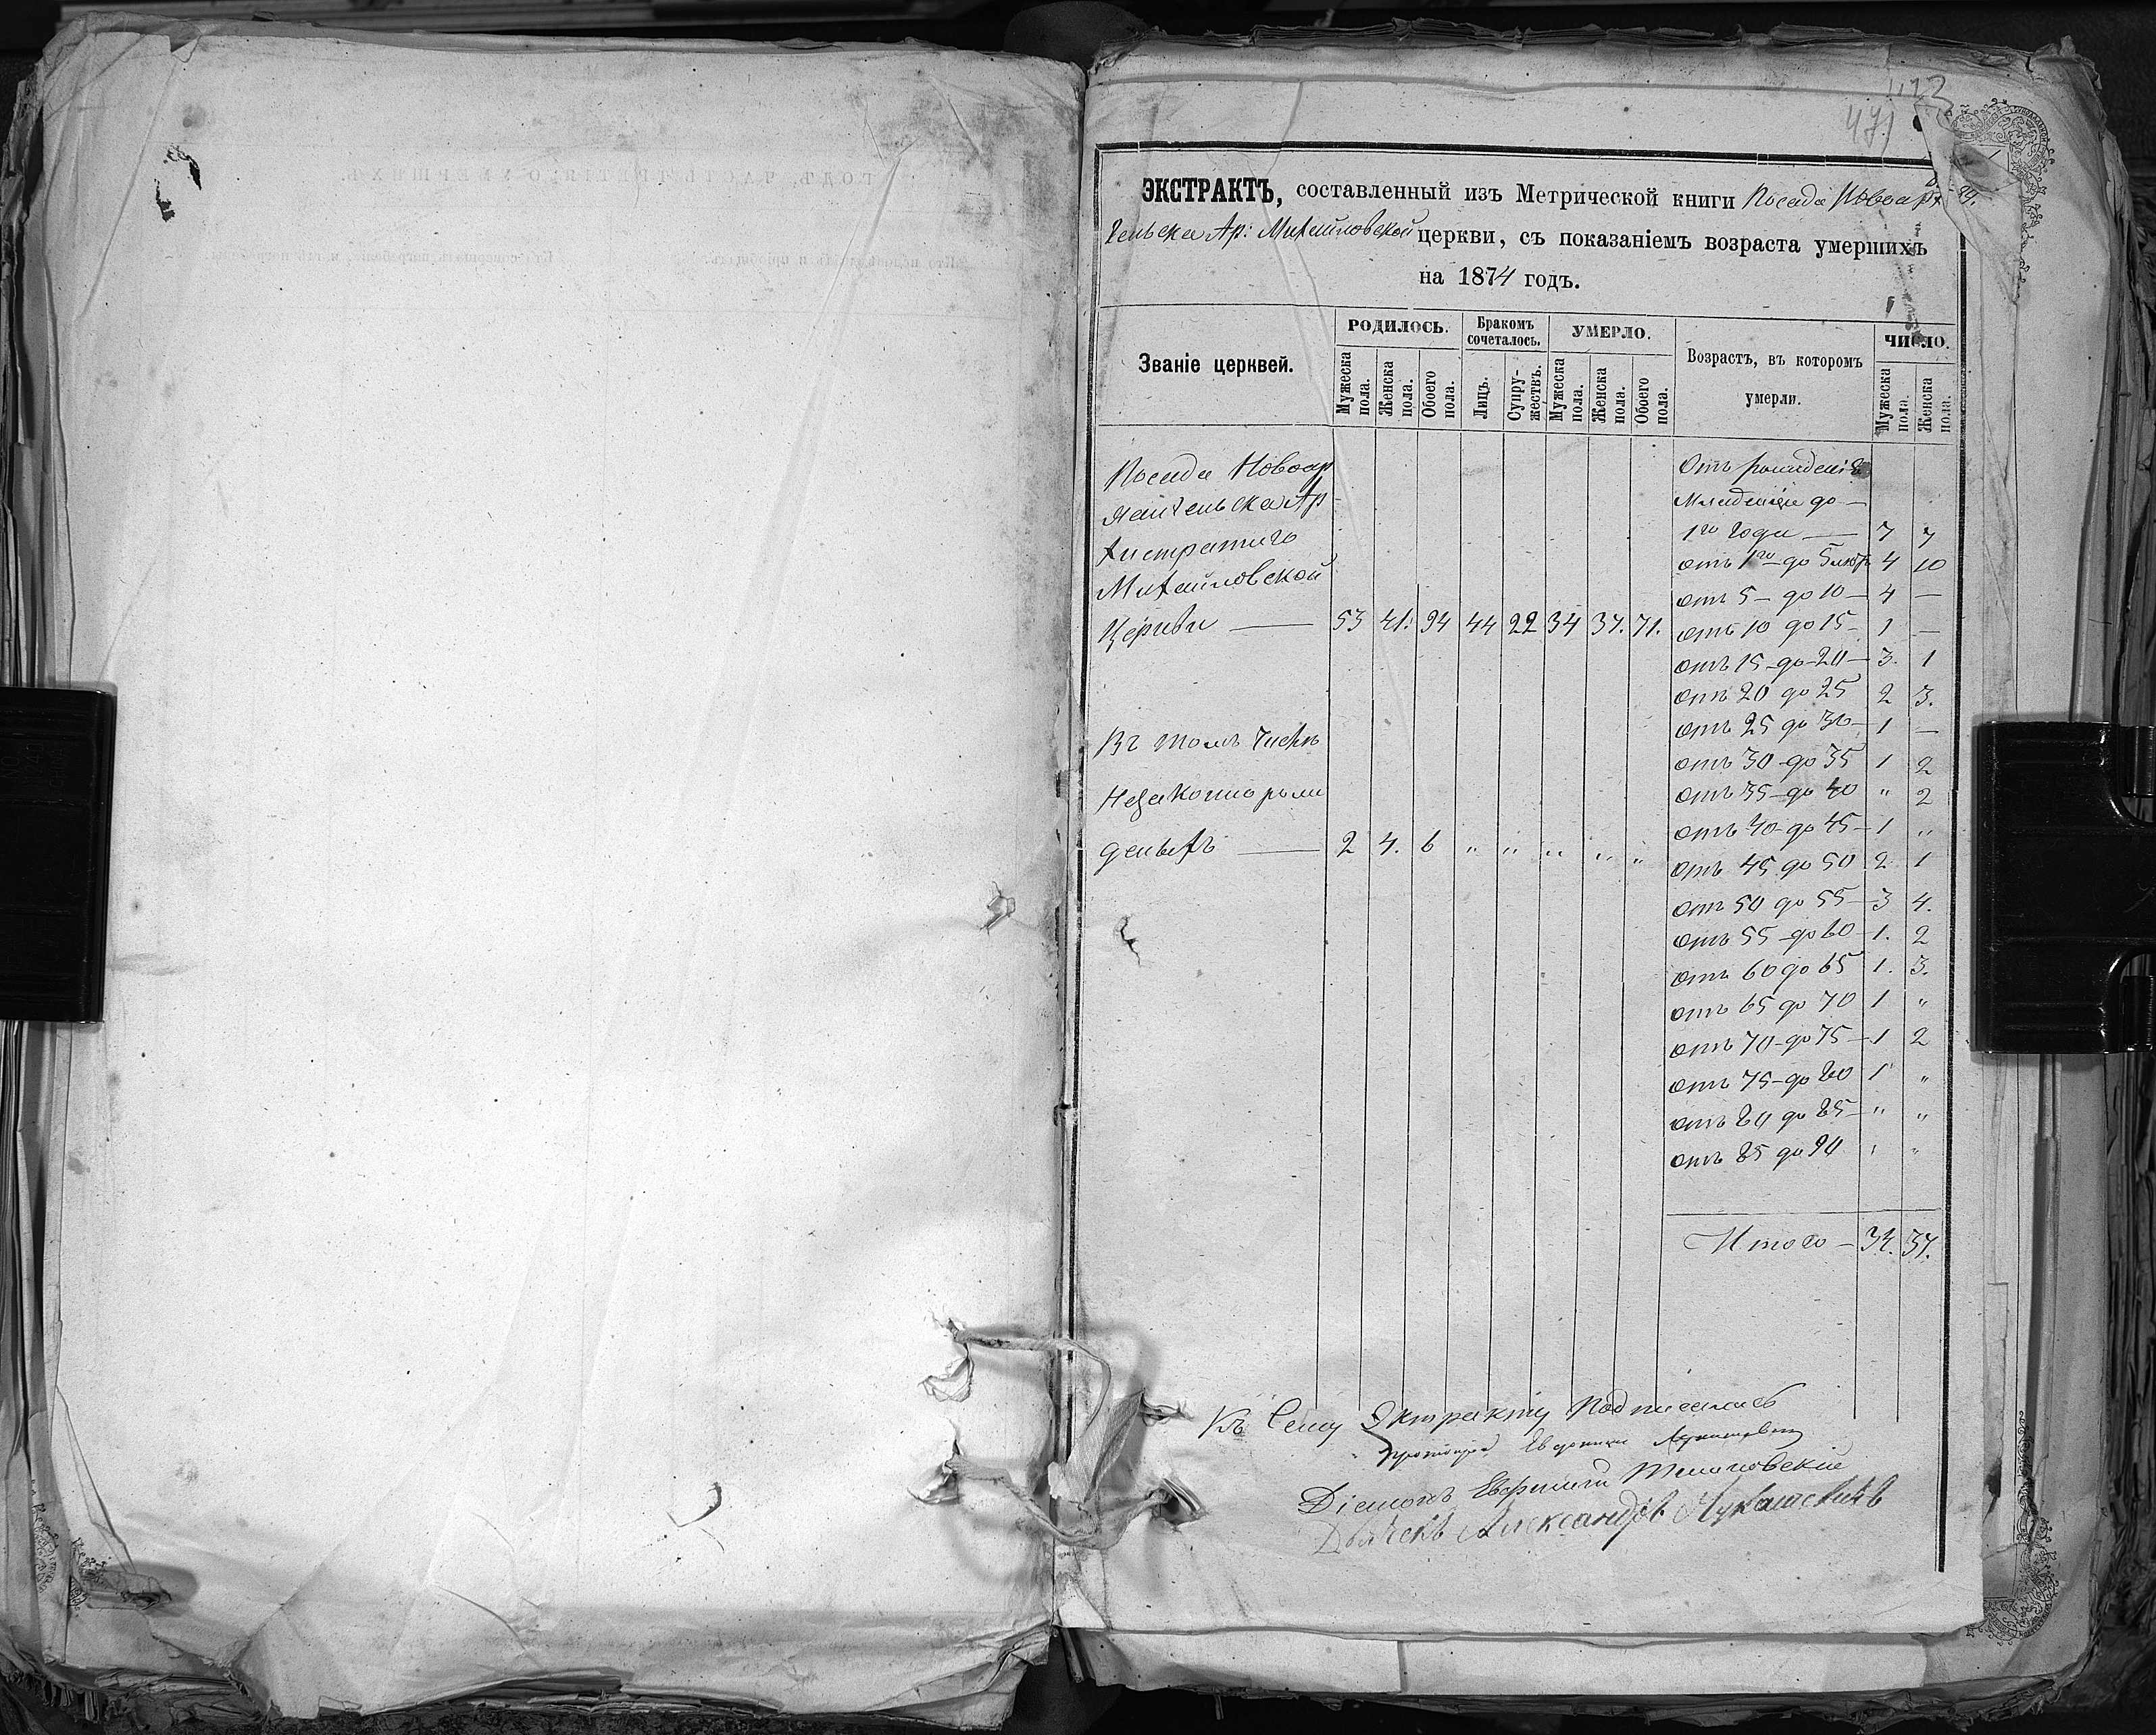 471
ЭКСТРАКТЪ, составленный изъ Метрической книги Посада Новоарх
гельска Ар: Михайловской церкви, съ показаніемъ возраста умершихъ
на 1874 годъ.
Званіе церквей.
РОДИЛОСЬ.
Мужеска пола.
Женска пола.
Обоего пола.
Бракомъ сочеталось.
Лицъ.
Супружествъ.
УМЕРЛО.
Мужеска пола.
Женска пола.
Обоего пола.
Возрастъ, въ которомъ
умерли.
ЧИСЛО.
Мужеска пола.
Женска пола.
Посада Новоар
хангельска Ар
хистратиго
Михайловской
Церкви — 53 41. 94 44 22 34 37. 71.
Въ томъ числѣ
Незаконно рож
денныхъ — 2 4. 6 " " " " "
Отъ рожденія
Младенцы до —
1го года — 7 7
отъ 1го до 5 лѣтъ 4 10
отъ 5 — до 10 — 4 —
отъ 10 до 15 — 1 —
отъ 15 — до 20 — 3. 1
отъ 20 до 25 2 3.
отъ 25 до 30 — 1 —
отъ 30 — до 35 1 2
отъ 35 — до 40 " 2
отъ 40 — до 45 — 1 "
отъ 45 до 50 2 1
отъ 50 до 55 — 3 4.
отъ 55 — до 60 — 1. 2
отъ 60 до 65 1. 3.
отъ 65 до 70 1 "
отъ 70 — до 75 — 1 2
отъ 75 — до 80 1 "
отъ 80 до 85 — " "
отъ 85 до 90 " "
Итого — 34. 37.
Къ сему Экстракту подписались
Діаконъ Евфимій
Дьячекъ Александръ Лукашевичъ